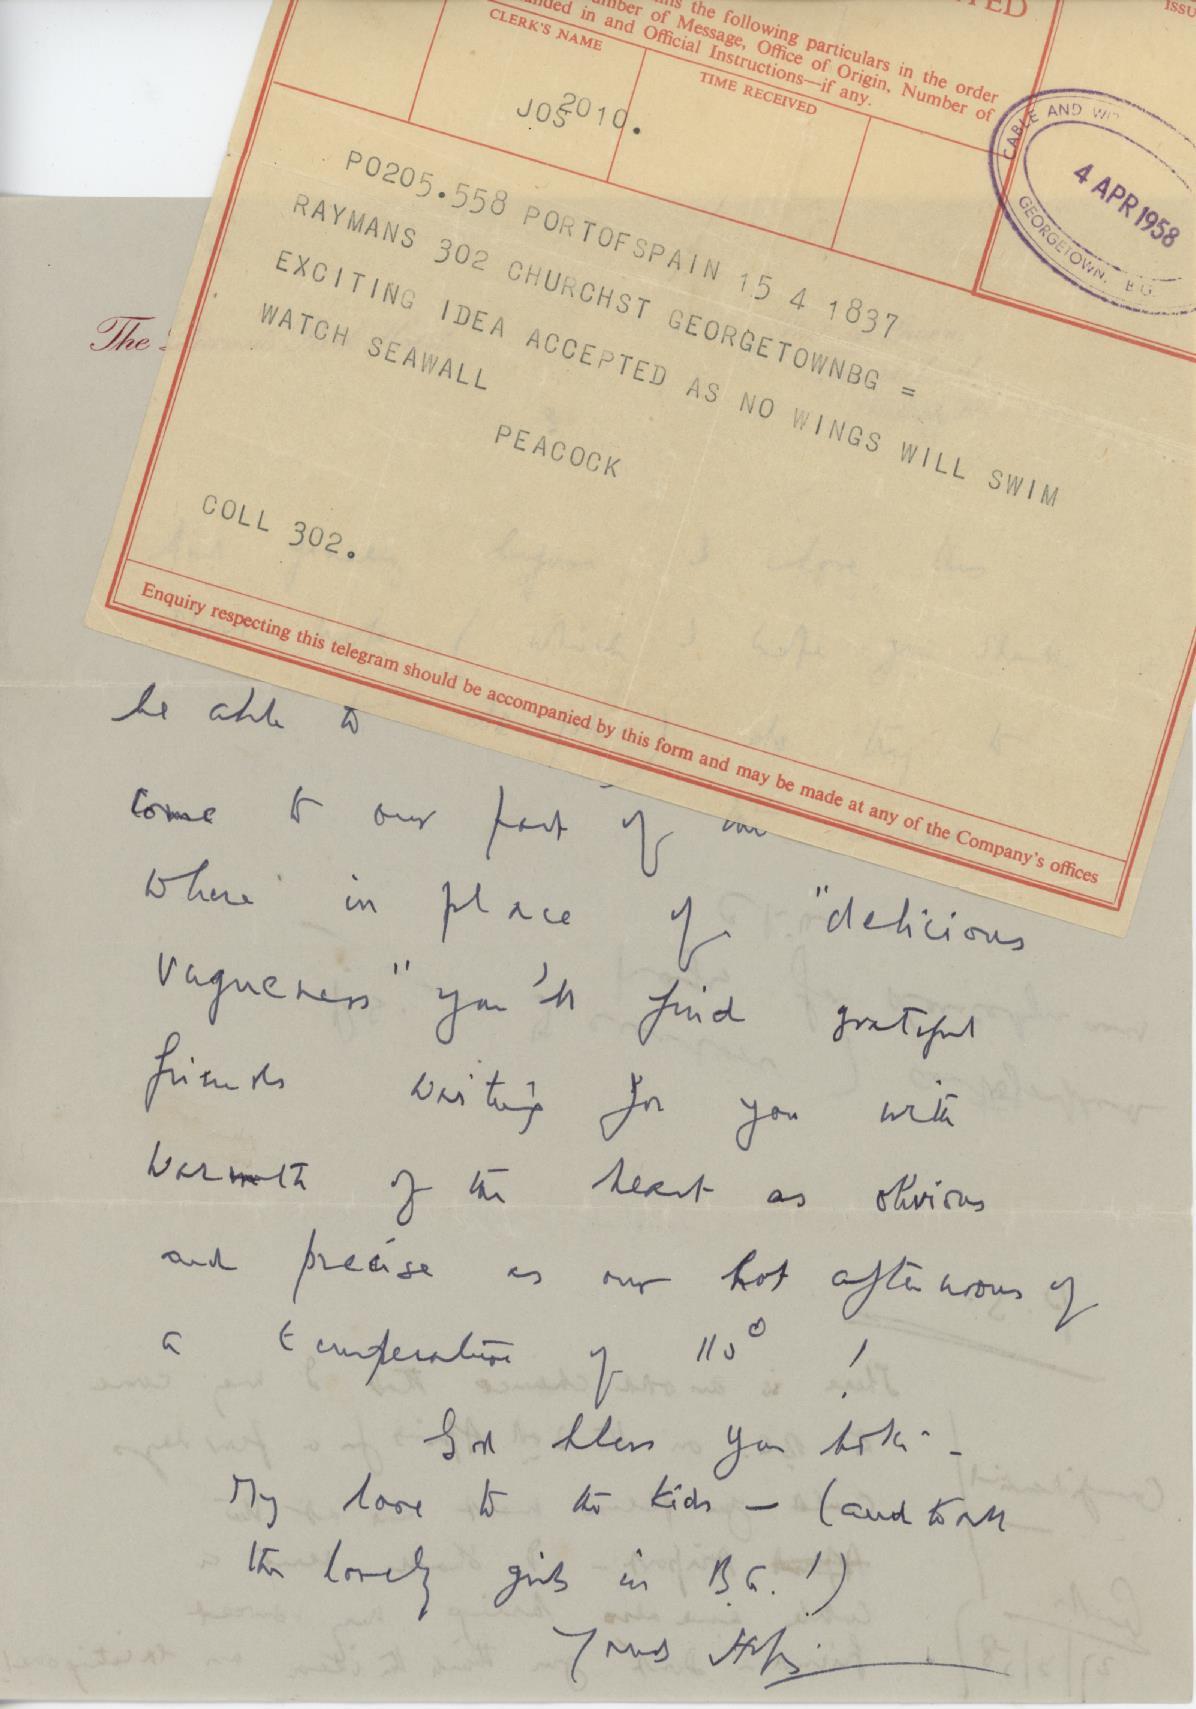 ISSU
the following particulars in the order
mber of Message, Office of Origin, Number of
anded in and Official Instructions—if any.
CLERK'S NAME
TIME RECEIVED
JOS 2010.
CABLE AND WI
4 APR 1958
GEORGETOWN, B.G.
PO205.558 PORTOFSPAIN 15 4 1837
RAYMANS 302 CHURCHST GEORGETOWNBG =
EXCITING IDEA ACCEPTED AS NO WINGS WILL SWIM
WATCH SEAWALL
PEACOCK
COLL 302.
Enquiry respecting this telegram should be accompanied by this form and may be made at any of the Company's offices
The
be able to
come to our part of the
where in place of "delicious
vagueness" you'll find grateful
friends waiting for you with
warmth of the heart as obvious
and precise as our hot afternoons of
a temperature of 110° !
God bless you both -
My love to the kids — (and to all
the lovely girls in B.G.!)
Yours